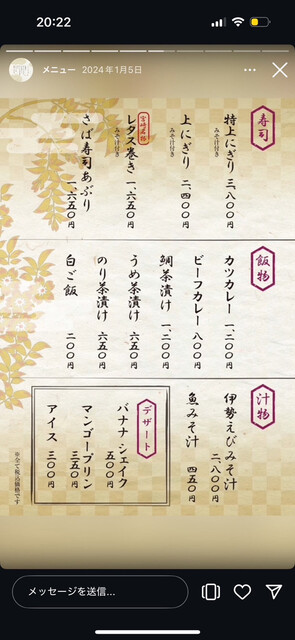 20:22
メニュー 2024年1月5日
寿司
特上にぎり 三、八〇〇円
みそ汁付き
上にぎり 二、四〇〇円
みそ汁付き
宮崎名物
レタス巻き 一、六五〇円
みそ汁付き
さば寿司あぶり 一、六五〇円
飯物
カツカレー 一、二〇〇円
ビーフカレー 八〇〇円
鯛茶漬け 一、二〇〇円
うめ茶漬け 六五〇円
のり茶漬け 六五〇円
白ご飯 二〇〇円
汁物
伊勢えびみそ汁 二、八〇〇円
魚みそ汁 四五〇円
デザート
バナナシェイク 五〇〇円
マンゴープリン 三五〇円
アイス 三〇〇円
※全て税込価格です
メッセージを送信...